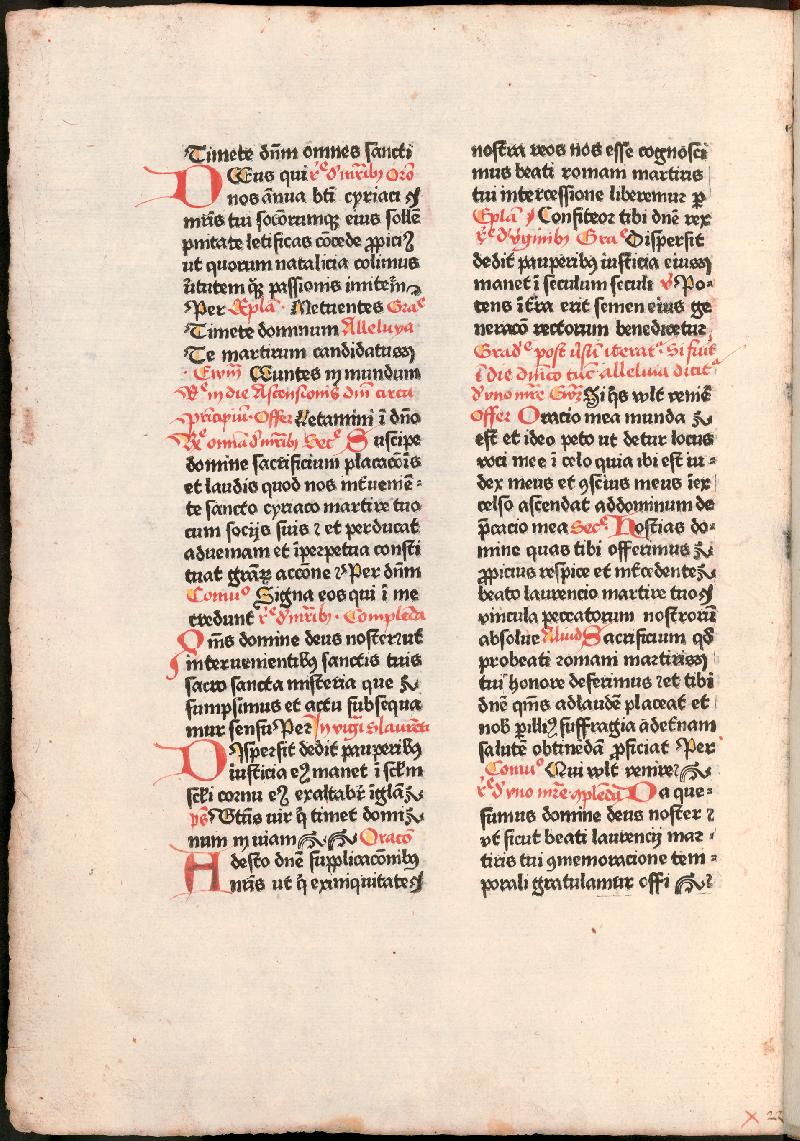 Timete dn̄m omnes sancti
DEus qui rͤ d mr̄ibꝰ Orō
nos an̄ua bt̄i cyriaci ⁊
mr̄is tui socōrumqꝫ eius solle
pnitate letificas cōcede ꝓpiciꝰ
ut quorum natalicia colimus
ūtutem qꝫ passionis imitem̄
Per Epl̄a Metuentes Graͤ
Timete dominum Alleluya
Te martirum candidatus
Ewm̄ Euntes in mundum
Rͤ in die Ascensionis dn̄i circa
principiū Offer Letamini ī dn̄o
Rͤ omnia d mr̄ibꝰ Secͤ Suscipe
domine sacrificium placacōis
et laudis quod nos int̄ueniē-
te sancto cyriaco martire tuo
cum socijs suis ⁊ et perducat
ad ueniam et īperpetua consti
tuat grār̄ accōne ⁊ Per dn̄m
Comuͦ Signa eos qui ī me
credunt rͤ d mr̄ibꝰ Complenda
Qm̄s domine deus noster ⁊ ut
interuenientibꝰ sanctis tuis
sacro sancta misteria que
sumpsimus et actu subsequa
mur sensu Per In vigis laurēti
DIspersit dedit pauperibꝰ
iusticia eꝰ manet ī scl̄m
scl̄i cornu eꝰ exaltabr̄ īgl̄a
ps̄ Btūs uir q̄ timet domi
num in uiam Oracō
Adesto dn̄e supplicacōnibꝰ
nr̄is ut q̄ ex iniquitate
nostra reos nos esse cognosci
mus beati romani martiris
tui intercessione liberemur ꝑ
Epl̄a Confiteor tibi dn̄e rex
rͤ d v̄ginibꝰ Graͤ Dispersit
dedit pauperibꝰ iusticia eius
manet ī seculum seculi v̄ Po-
tens ī t̄ra erit semen eius ge
neracō rectorum benedicetur
Gradͤ post v̄sū iteratͬ Si fuit
ī die dn̄ico tūc alleluia dicitͬ
d vno mr̄e Ewꝫ Si q̄s vult venire
Offer Oracio mea munda
est et ideo peto ut detur locus
voci mee ī celo quia ibi est iu-
dex meus et ꝯscius meus īex
celso ascendat ad dominum de
p̄cacio mea Secͤ Hostias do-
mine quas tibi offerimus
ꝓpicius respice et int̄cedente
beato laurencio martire tuo
vincula peccatorum nostrorū
absolue Aliud Sacrificium qd̄
pro beati romani martiris
tui honore deferimus ⁊ et tibi
dn̄e qm̄s ad laudē placeat et
nob̄ ꝑ illiꝰ suffragia ād et̄nam
salutē obtinēdā ꝓficiat Per
Comuͦ Qui vult venire
rͤ d vno mr̄e ꝯplēdā Da que-
sumus domine deus noster ⁊
vt sicut beati laurencij mar-
tiris tui ꝯmemoracione tem-
porali gratulamur offi
22